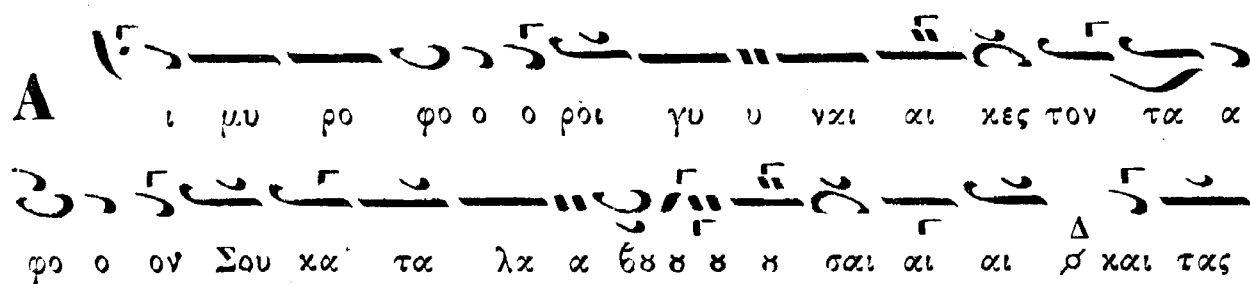 Α ι μυ ρο φο ο ο ροι γυ υ ναι αι κες τον τα α
φο ο ον Σου κα τα λα α βου ου ου ου σαι αι αι Δ και τας